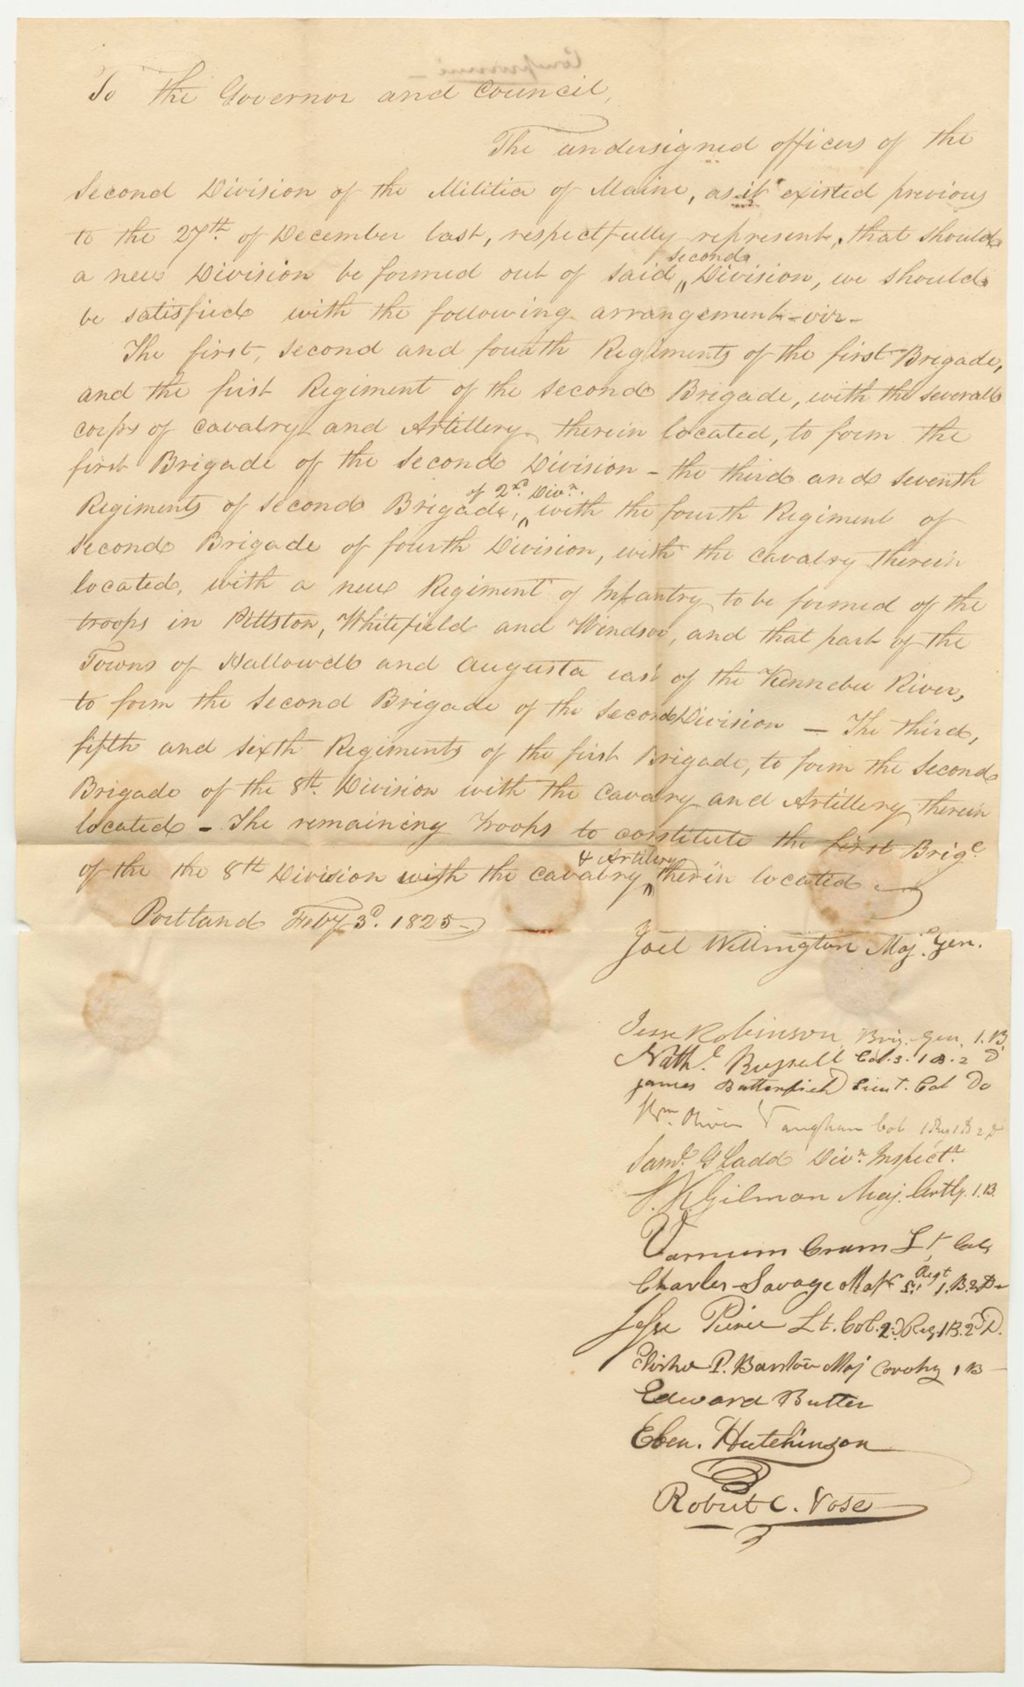 To the Governor and Council,
The undersigned officers of the
Second Division of the Militia of Maine, as it existed previous
to the 27th. of December last, respectfully represent, that should
a new Division be formed out of said second Division, we should
be satisfied with the following arrangement - viz -
The first, second and fourth Regiments of the first Brigade,
and the first Regiment of the second Brigade, with the several
corps of cavalry and Artillery therein located, to form the
first Brigade of the Second Division - the third and seventh
Regiments of second Brigade, of 2d. Divn. with the fourth Regiment of
second Brigade of fourth Division, with the cavalry therein
located, with a new Regiment of Infantry to be formed of the
troops in Pittston, Whitefield and Windsor, and that part of the
Towns of Hallowell and Augusta east of the Kennebec River,
to form the Second Brigade of the Second Division - The third,
fifth and sixth Regiments of the first Brigade, to form the Second
Brigade of the 8th. Division with the cavalry and Artillery therein
located - The remaining Troops to constitute the first Brige.
of the the 8th Division with the cavalry & Artillery therein located
Portland Feby 3d. 1825
Joel Wellington Maj. Gen.
Jesse Robinson Brig. Gen. 1. B.
Nathl. Russell Col. 3. 1 B. 2 D
James Butterfield Lieut. Col Do
Wm. Oliver Vaughan Col 1 Reg 1 B 2 D
Saml. G Ladd Divn. Inspectr.
Gilman Maj. Artly. 1. B.
Varnum Cram Lt Col
Charles Savage Majr 1. Regt 1. B. 2 D
Jesse Peirce Lt. Col. 2d. Reg 1 B. 2d D.
Elisha P. Barstow Maj Cavalry 1 B
Edward Butter
Eben. Hutchinson
Robert C. Vose